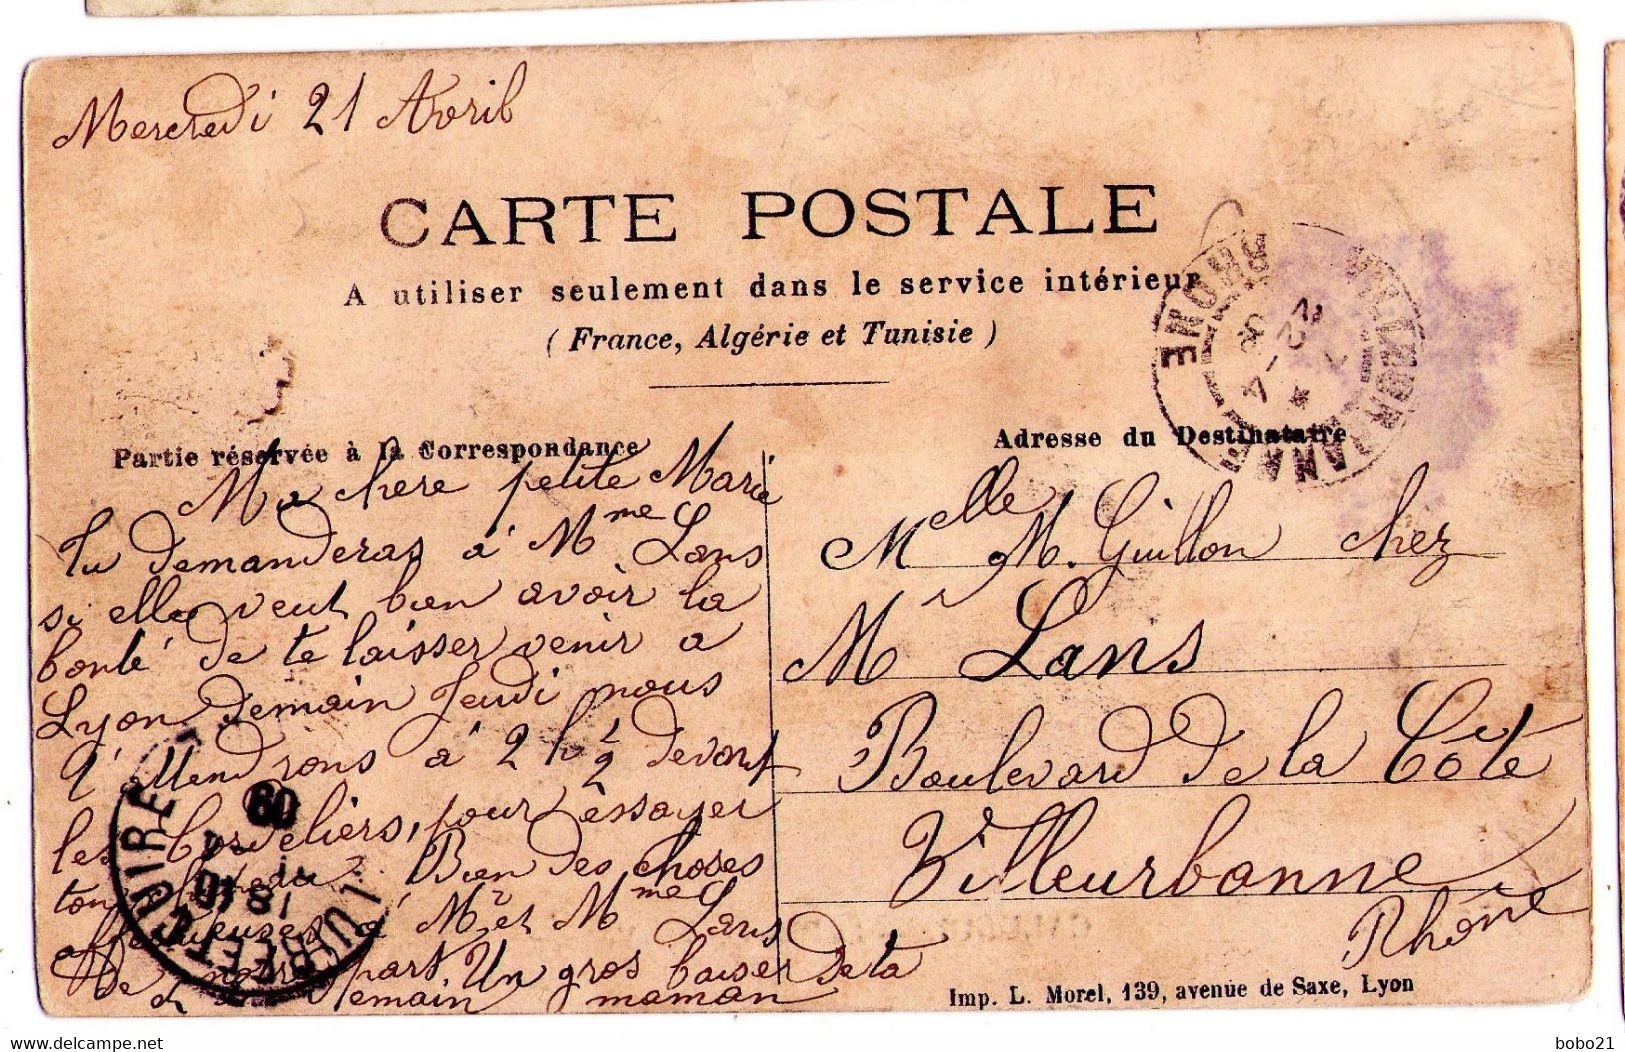 Mercredi 21 Avril
CARTE POSTALE
A utiliser seulement dans le service intérieur
( France, Algérie et Tunisie )
Partie réservée à la Correspondance
Adresse du Destinataire
Ma chere petite Marie
tu demanderas à Mme Lans
si elle veut bien avoir la
bonté de te laisser venir a
Lyon demain Jeudi nous
t'attendrons à 2 h 1/2 devant
les Cordeliers, pour éssayer
ton chapeau. Bien des choses
affectueuses à Mr et Mme Lans
De notre part. Un gros baiser de ta
à demain maman
Melle M. Guillon chez
Mr Lans
Boulevard de la Côte
Villeurbanne
Rhône
VILLEURBANNE
RHONE
22 - 4
CUIRE
09
18 40
Imp. L. Morel, 139, avenue de Saxe, Lyon
bobo21